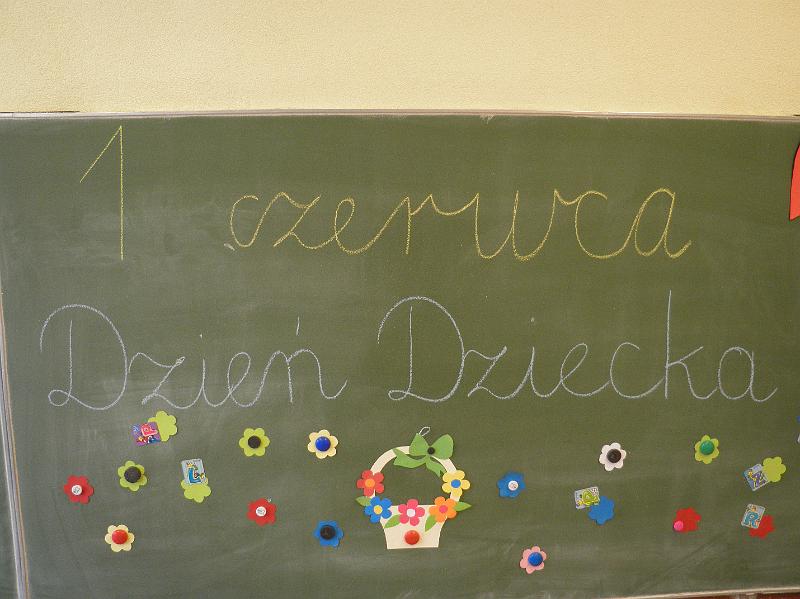 1 czerwca
Dzień Dziecka